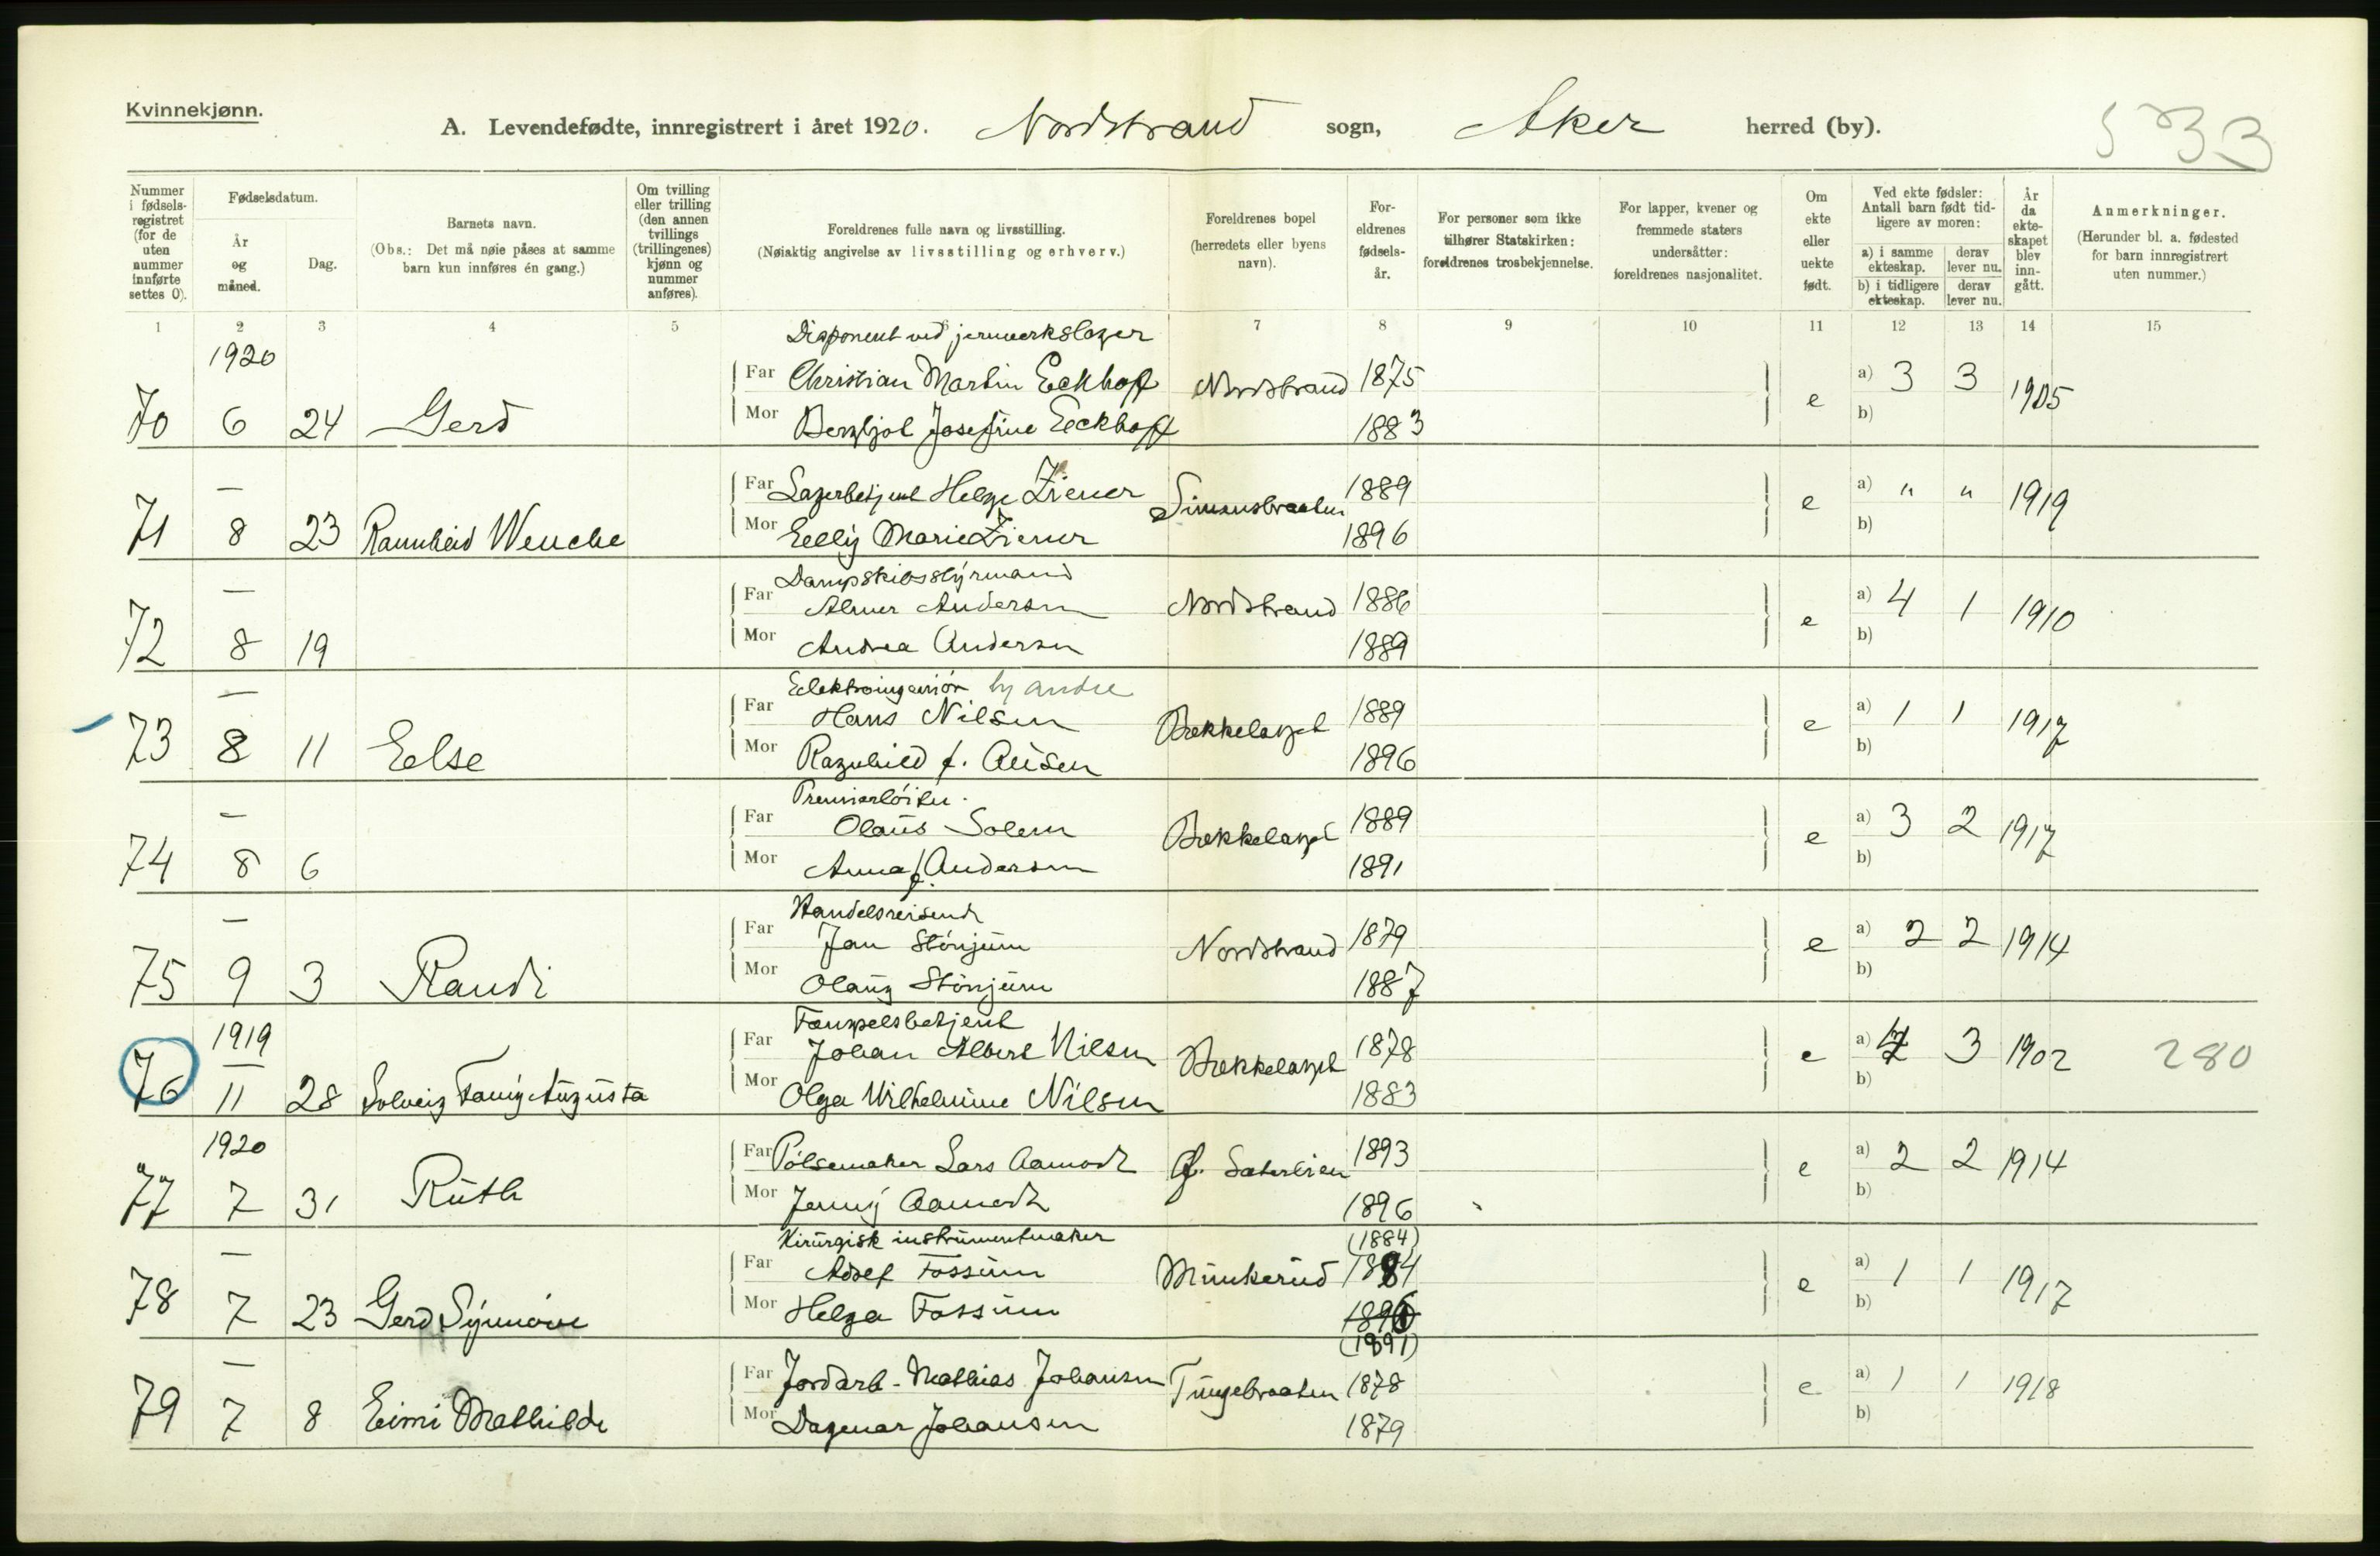 Kvinnekjønn.
A. Levendefødte, innregistrert i året 1920. Nordstrand sogn, Aker herred (by).
533
Nummer i fødsels-registret (for de uten nummer innførte settes 0).
Fødselsdatum.
År og måned.
Dag.
Barnets navn.
(Obs.: Det må nøie påses at samme barn kun innføres én gang.)
Om tvilling eller trilling (den annen tvillings (trillingenes) kjønn og nummer anføres).
Foreldrenes fulle navn og livsstilling.
(Nøiaktig angivelse av livsstilling og erhverv.)
Foreldrenes bopel (herredets eller byens navn).
For-eldrenes fødsels-år.
For personer som ikke tilhører Statskirken: foreldrenes trosbekjennelse.
For lapper, kvener og fremmede staters undersåtter: foreldrenes nasjonalitet.
Om ekte eller uekte født.
Ved ekte fødsler: Antall barn født tid-ligere av moren:
a) i samme ekteskap. derav lever nu.
b) i tidligere ekteskap. derav lever nu.
År da ekte-skapet blev inn-gått.
Anmerkninger.
(Herunder bl. a. fødested for barn innregistrert uten nummer.)
1 2 3 4 5 6 7 8 9 10 11 12 13 14 15
1920 Disponent ved jernverkslager
Far Christian Martin Eckhoff Nordstrand 1875 a) 3 3 1905
70 6 24 Gerd Mor Bergljot Josefine Eckhoff 1883 e b)
— Far Lagerbetjent Helge Ziener Simensbraaten 1889 a) " " 1919
71 8 23 Rannheid Wenche Mor Elly Marie Ziener 1896 e b)
Dampskibsstyrmand
— Far Almer Andersen Nordstrand 1886 a) 4 1 1910
72 8 19 Mor Andrea Andersen 1889 e b)
— Elektroingeniør hj andre
Far Hans Nilsen Bekkelaget 1889 a) 1 1 1917
73 8 11 Else Mor Ragnhild f. 1896 e b)
Premierløitn.
— Far Olaus Solem Bekkelaget 1889 a) 3 2 1917
74 8 6 Mor Anna f. Andersen 1891 e b)
Handelsreisende
— Far Jan Stönjum Nordstrand 1879 a) 2 2 1914
75 9 3 Randi Mor Olaug Stönjum 1887 e b)
1919 Fængselsbetjent
— Far Johan Albert Nilsen Bekkelaget 1878 a) 3 1902 280
76 11 28 Solveig Fanny Augusta Mor Olga Wilhelmine Nilsen 1883 e b)
1920 Far Pølsemaker Lars Aamodt 1893 a) 2 2 1914
77 7 31 Ruth Mor Jenny Aamodt 1896 e b)
Kirurgisk instrumentmaker (1884)
— Far Adolf Fossum Munkerud 1884 a) 1 1 1917
78 7 23 Gerd Synnöve Mor Helga Fossum 1896 e b)
(1891)
— Far Jordarb. Mathias Johansen Tungebraaten 1878 a) 1 1 1918
79 7 8 Eimi Mathilde Mor Dagmar Johansen 1879 e b)